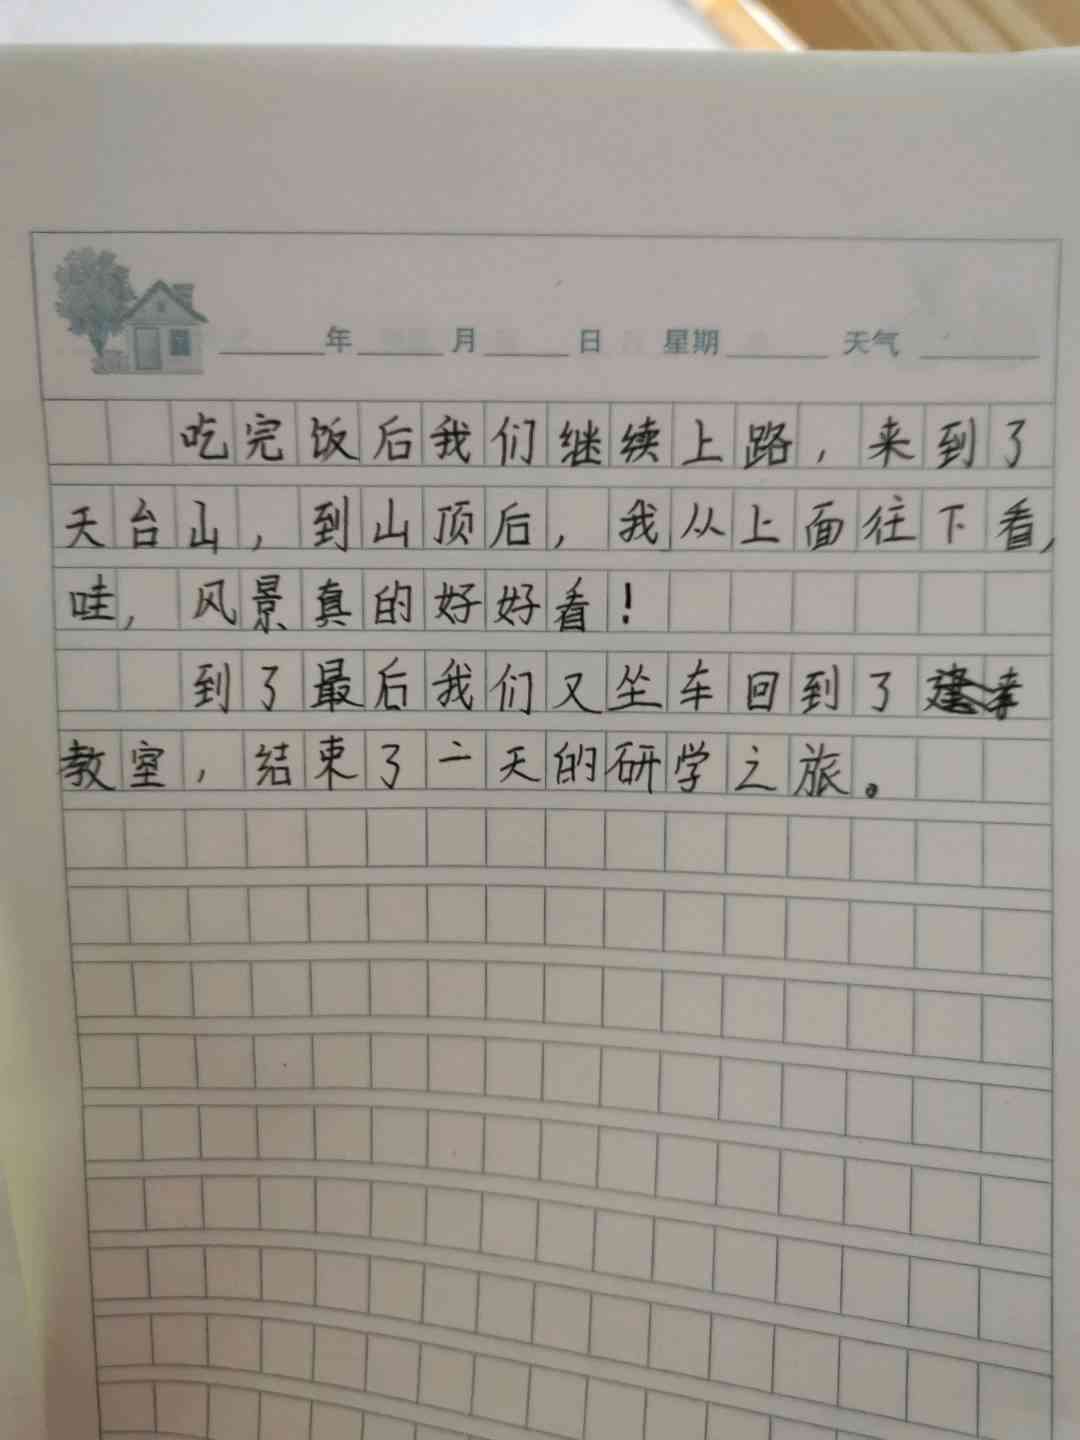 年 月 日 星期 天气
吃完饭后我们继续上路，来到了
天台山，到山顶后，我从上面往下看，
哇，风景真的好好看！
到了最后我们又坐车回到了
教室，结束了一天的研学之旅。